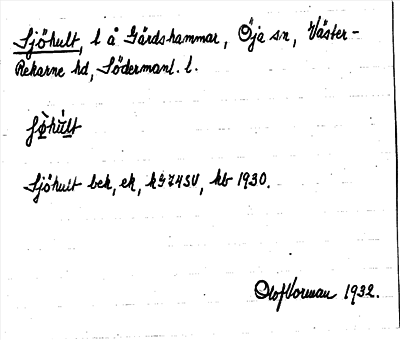 Sjöhult, l å Gärdshammar, Öja sn, Väster-
Rekarne hd, Södermanl. l.
Sjöhult bek, ek, kg 74 SV, kb 1930.
Olof Norman 1932.